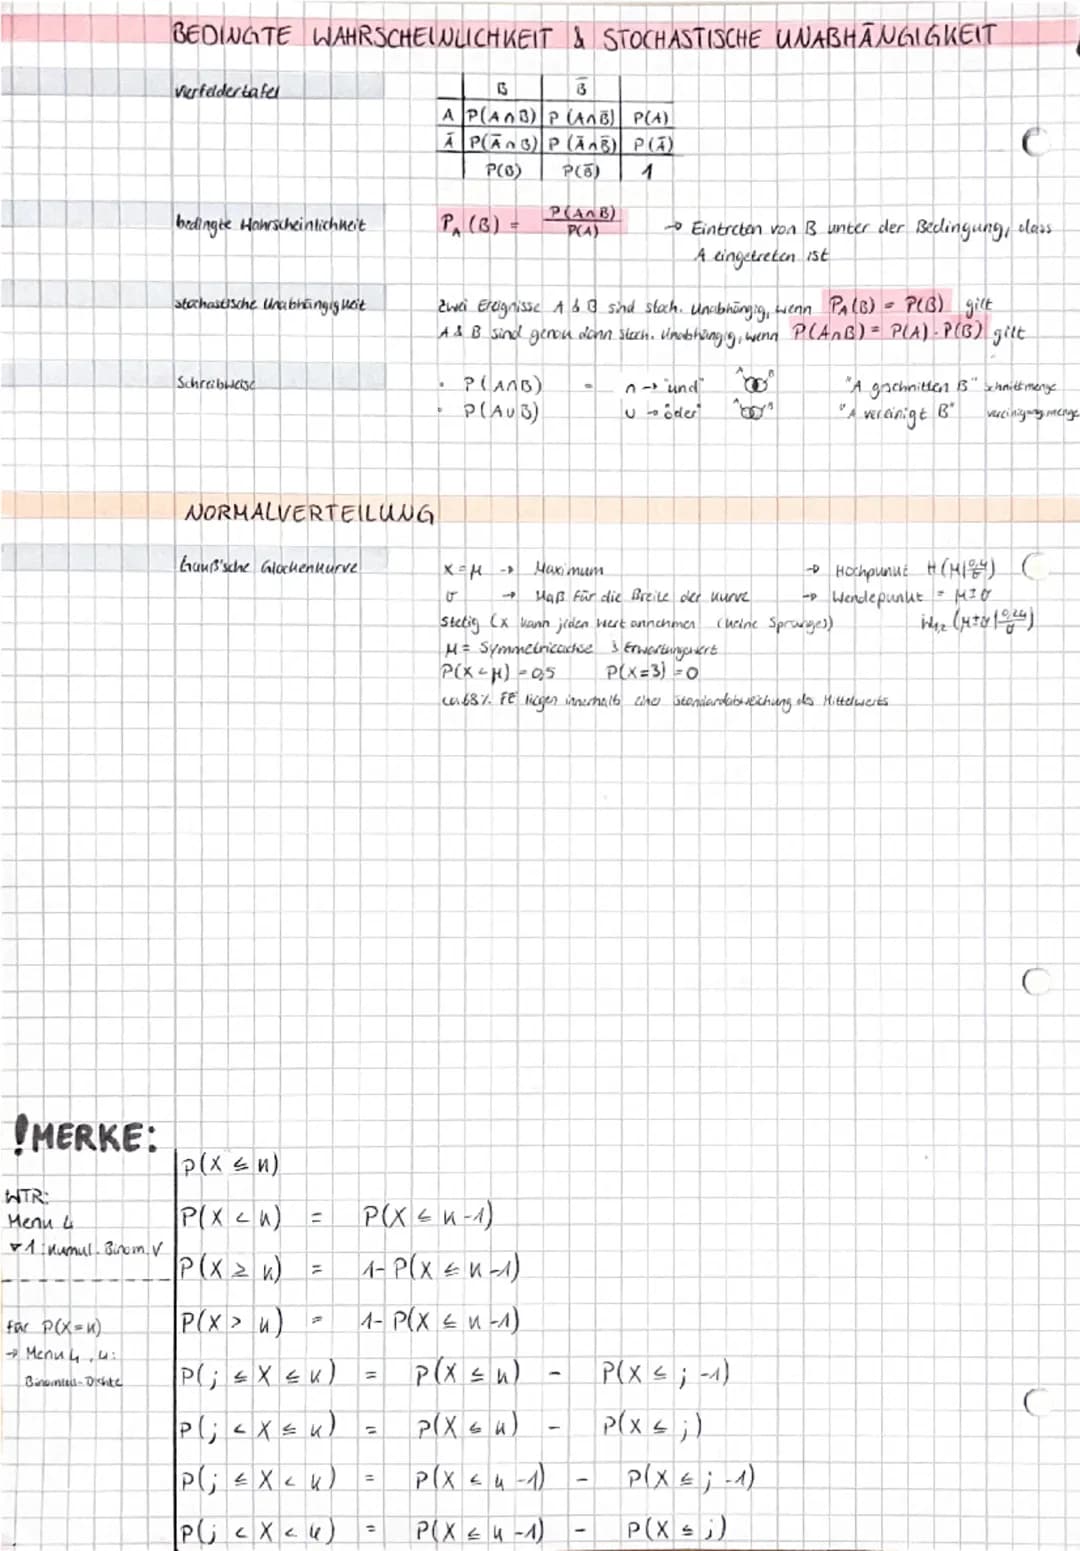 BEDINGTE WAHRSCHEINLICHKEIT & STOCHASTISCHE UNABHÄNGIGKEIT
Vierfeldertafel
B B̄
A P(A∩B) P(A∩B̄) P(A)
Ā P(Ā∩B) P(Ā∩B̄) P(Ā)
P(B) P(B̄) 1
bedingte Wahrscheinlichkeit P_A(B) = P(A∩B) / P(A) → Eintreten von B unter der Bedingung, dass
A eingetreten ist
stochastische Unabhängigkeit Zwei Ereignisse A & B sind stoch. unabhängig, wenn P_A(B) = P(B) gilt
A & B sind genau dann stoch. unabhängig, wenn P(A∩B) = P(A) · P(B) gilt
Schreibweise • P(A∩B) = ∩ → "und" A B "A gschnitten B" schnittmenge
• P(A∪B) ∪ → "oder" A B "A vereinigt B" vereinigungsmenge
NORMALVERTEILUNG
Gauß'sche Glockenkurve x=μ → Maximum → Hochpunkt H(μ|0,4/σ)
σ → Maß für die Breite der Kurve → Wendepunkt = μ±σ
stetig (x kann jeden Wert annehmen (keine Sprünge)) W1,2 (μ±σ|0,24/σ)
μ = Symmetrieachse & Erwartungswert
P(X<μ) = 0,5 P(X=3) = 0
ca. 68% FE liegen innerhalb einer Standardabweichung des Mittelwerts
!MERKE:
P(X ≤ k)
WTR:
Menu 4
▽1: Kumul. Binom. V
P(X < k) = P(X ≤ k-1)
P(X ≥ k) = 1- P(X ≤ k-1)
für P(X=k)
→ Menu 4, 4:
Binomial-Dichte
P(X > k) = 1- P(X ≤ k-1)
P(j ≤ X ≤ k) = P(X ≤ k) - P(X ≤ j-1)
P(j < X ≤ k) = P(X ≤ k) - P(X ≤ j)
P(j ≤ X < k) = P(X ≤ k-1) - P(X ≤ j-1)
P(j < X < k) = P(X ≤ k-1) - P(X ≤ j)